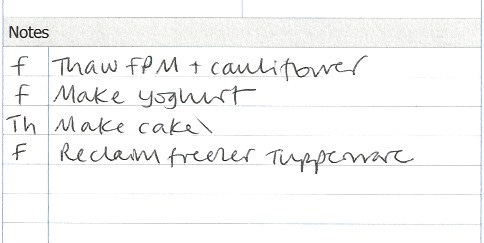 Notes
f Thaw FPM + cauliflower
f Make yoghurt
Th Make cake\
F Reclaim freezer Tupperware